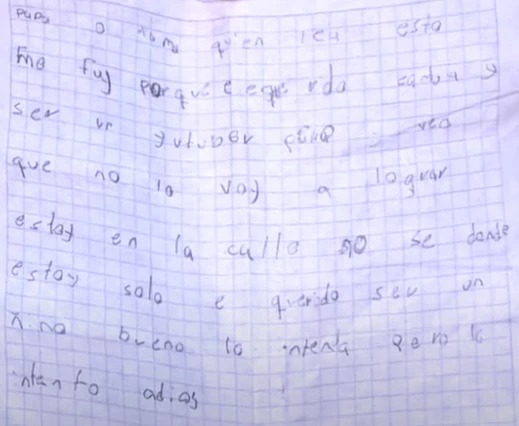 papa o mama quien lea esto
me fuy porque e querido cambia y
ser un yutuber y veo
que no lo voy a lograr
estoy en la calle no se donde
estoy solo e querido ser un
nino bueno lo intenta pero lo
intento adios